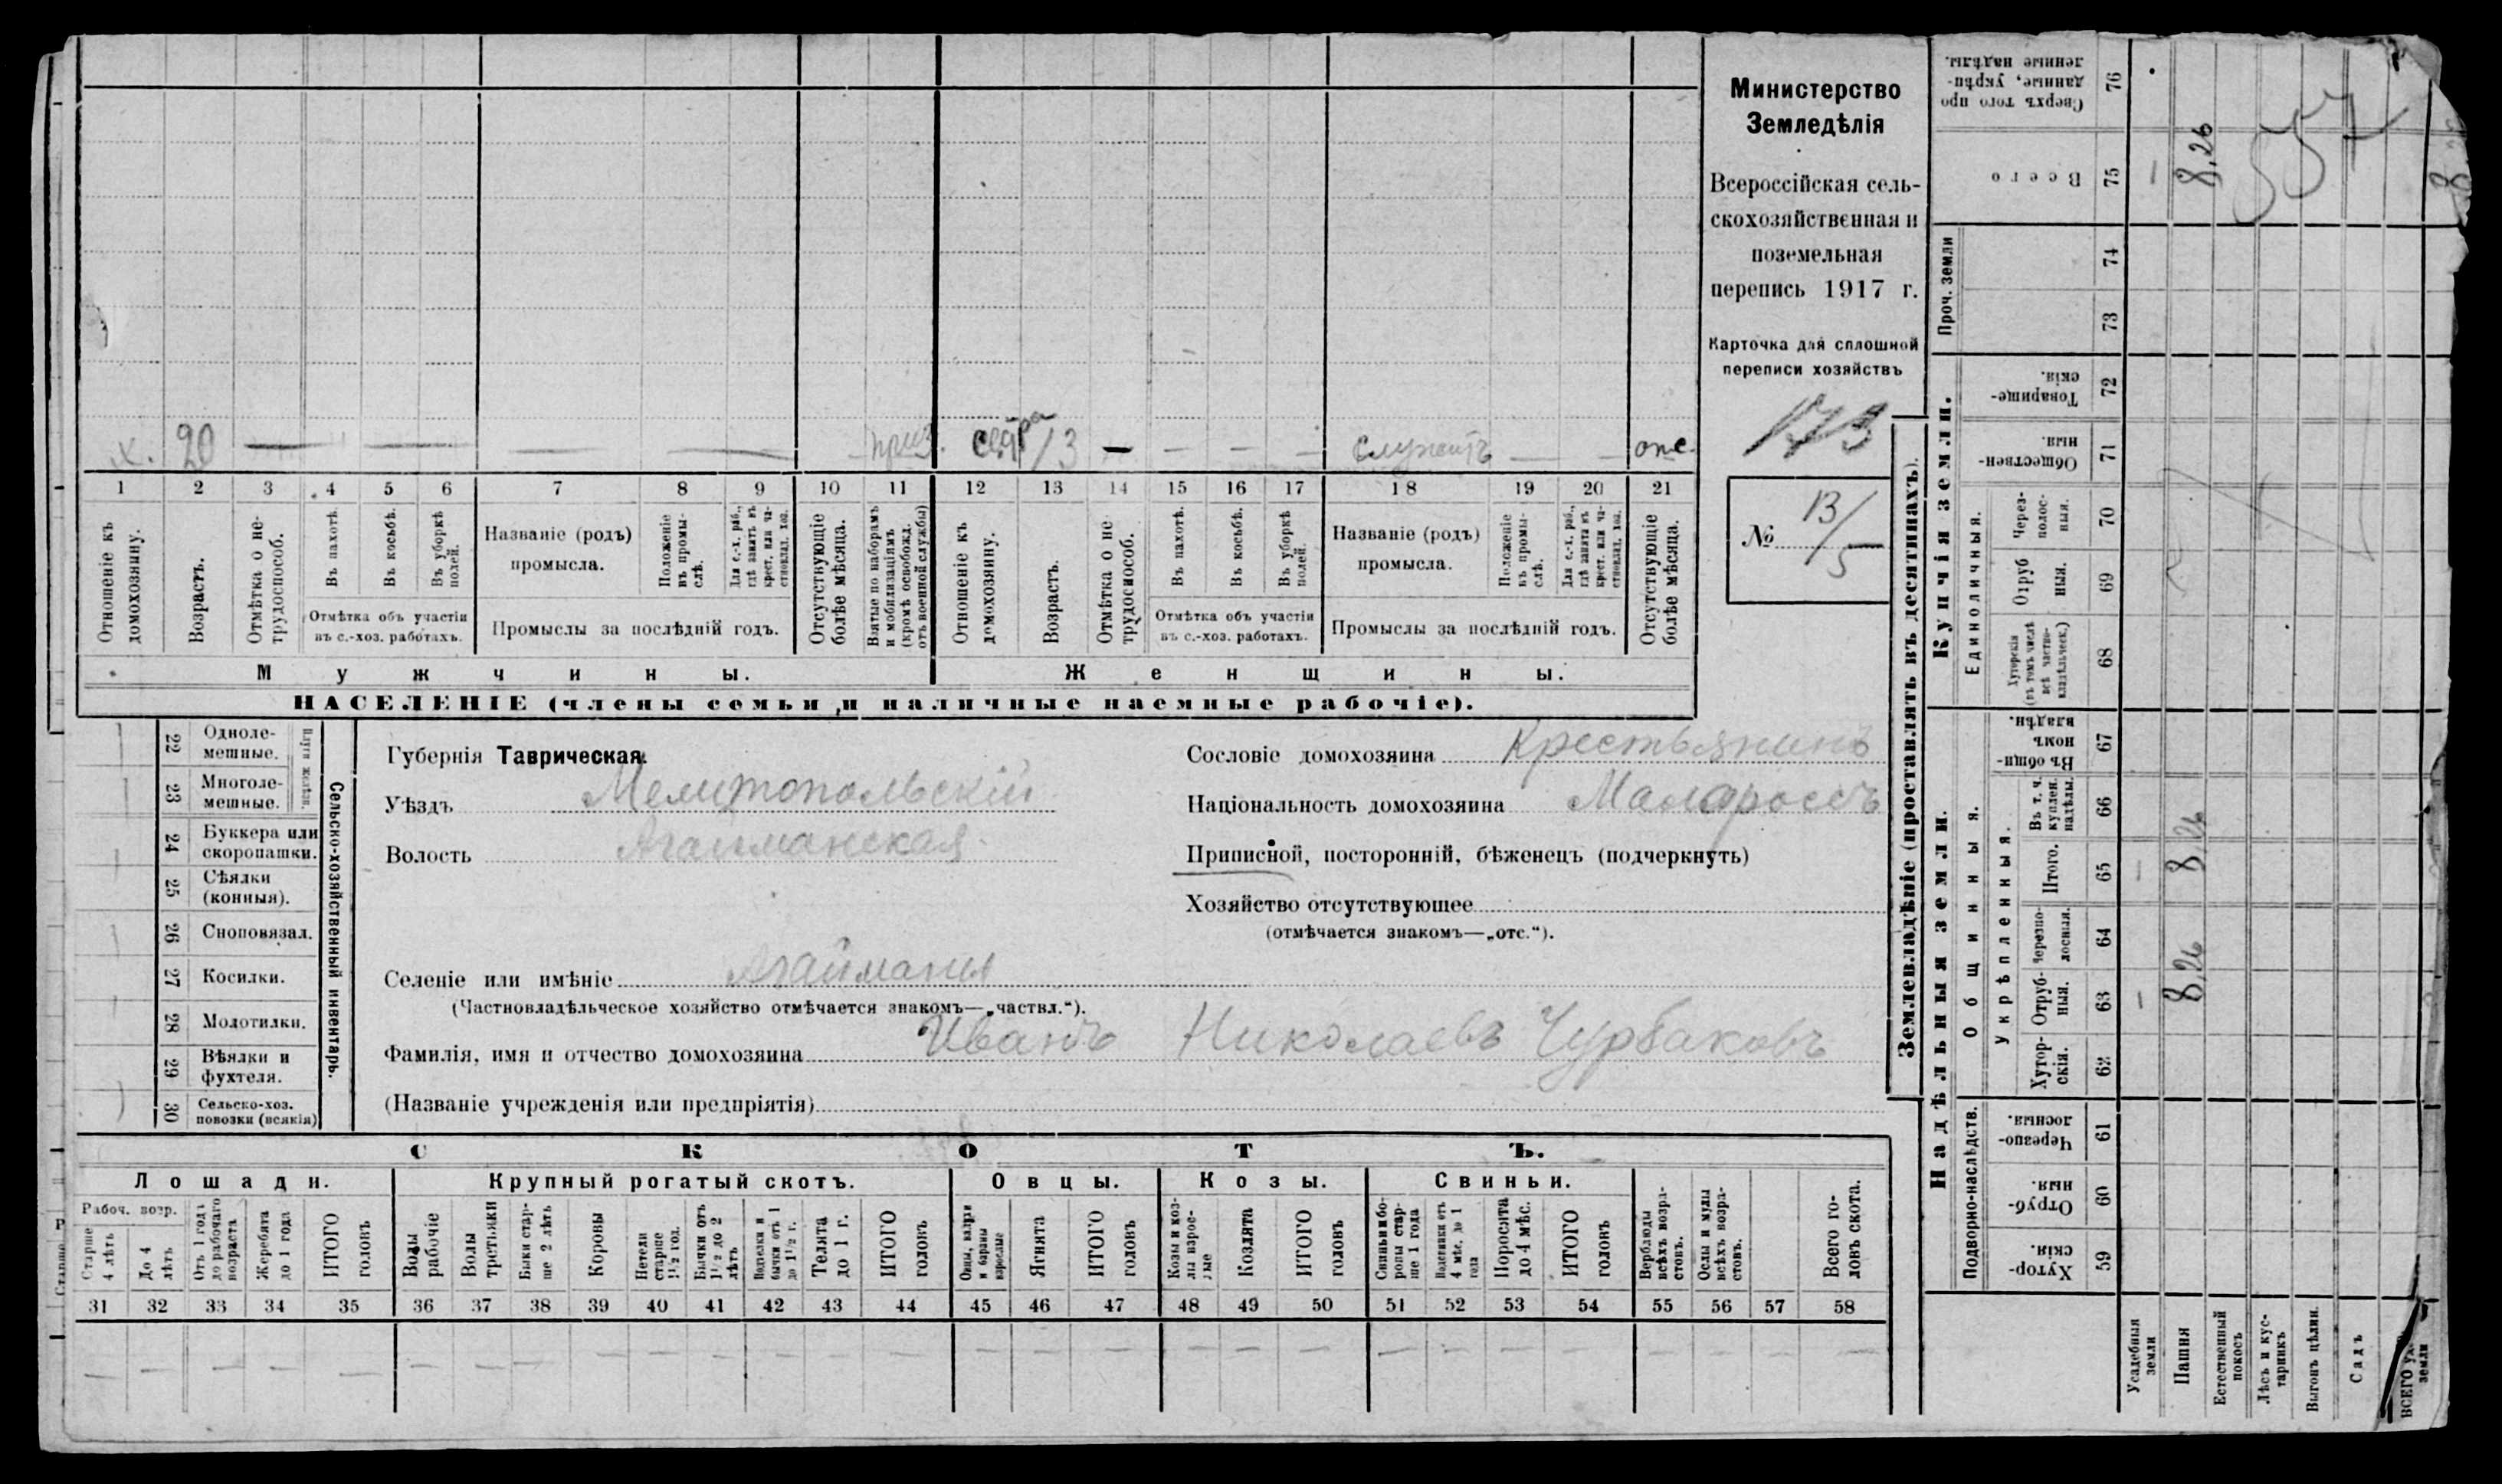 Министерство
Земледѣлія
Всероссійская сель-
скохозяйственная и
поземельная
перепись 1917 г.
Карточка для сплошной
переписи хозяйствъ
173
№ 13/5
х. 20 — — — — — приз. сестра 13 — — — — служитъ — — отс.
1 2 3 4 5 6 7 8 9 10 11 12 13 14 15 16 17 18 19 20 21
Отношеніе къ домохозяину.
Возрастъ.
Отмѣтка о не-трудоспособ.
Въ пахотѣ.
Въ косьбѣ.
Въ уборкѣ полей.
Отмѣтка объ участіи
въ с.-хоз. работахъ.
Названіе (родъ)
промысла.
Положеніе въ промы-слѣ.
Для с.-х. раб., гдѣ занятъ въ крест. или ча-стновлад. хоз.
Промыслы за послѣдній годъ.
Отсутствующіе болѣе мѣсяца.
Взятые по наборамъ и мобилизаціямъ (кромѣ освобожд. отъ военной службы)
Отношеніе къ домохозяину.
Возрастъ.
Отмѣтка о не-трудоспособ.
Въ пахотѣ.
Въ косьбѣ.
Въ уборкѣ полей.
Отмѣтка объ участіи
въ с.-хоз. работахъ.
Названіе (родъ)
промысла.
Положеніе въ промы-слѣ.
Для с.-х. раб., гдѣ занята въ крест. или ча-стновлад. хоз.
Промыслы за послѣдній годъ.
Отсутствующіе болѣе мѣсяца.
Мужчины. Женщины.
НАСЕЛЕНІЕ (члены семьи и наличные наемные рабочіе).
Сельско-хозяйственный инвентарь.
Плуги желѣзн.
22 Одноле-мешные.
23 Многоле-мешные.
24 Буккера или скоропашки.
25 Сѣялки (конныя).
26 Сноповязал.
27 Косилки.
28 Молотилки.
29 Вѣялки и фухтеля.
30 Сельско-хоз. повозки (всякія)
Губернія Таврическая.
Уѣздъ Мелитопольскій
Волость Агайманская
Сословіе домохозяина Крестьянинъ
Національность домохозяина Малороссъ
Приписной, посторонній, бѣженецъ (подчеркнуть)
Хозяйство отсутствующее
(отмѣчается знакомъ—„отс.“).
Селеніе или имѣніе Агайманы
(Частновладѣльческое хозяйство отмѣчается знакомъ—„частвл.“).
Фамилія, имя и отчество домохозяина Иванъ Николаевъ Чурбаковъ
(Названіе учрежденія или предпріятія)
СКОТЪ.
Лошади. Крупный рогатый скотъ. Овцы. Козы. Свиньи.
Рабоч. возр.
Старше 4 лѣтъ
До 4 лѣтъ
Отъ 1 года до рабочаго возраста
Жеребята до 1 года
ИТОГО головъ
Волы рабочіе
Волы третьяки
Быки стар-ше 2 лѣтъ
Коровы
Нетели старше 1½ год.
Бычки отъ 1½ до 2 лѣтъ
Подтелки и бычки отъ 1 до 1½ г.
Телята до 1 г.
ИТОГО головъ
Овцы, валухи и бараны взрослые
Ягнята
ИТОГО головъ
Козы и коз-лы взрос-лые
Козлята
ИТОГО головъ
Свиньи и бо-ровы стар-ше 1 года
Подсвинки отъ 4 мѣс. до 1 года
Поросята до 4 мѣс.
ИТОГО головъ
Верблюды всѣхъ возра-стовъ.
Ослы и мулы всѣхъ возра-стовъ.
Всего го-ловъ скота.
31 32 33 34 35 36 37 38 39 40 41 42 43 44 45 46 47 48 49 50 51 52 53 54 55 56 57 58
Землевладѣніе (проставлять въ десятинахъ).
Надѣльныя земли. Купчія земли. Проч. земли
Подворно-наслѣдств.
Общинныя.
Укрѣпленныя.
Единоличныя.
59 Хутор-скія.
60 Отруб-ныя.
61 Черезпо-лосныя.
62 Хутор-скія.
63 Отруб-ныя.
64 Черезпо-лосныя.
65 Итого.
66 Въ т. ч. куплен. надѣлы.
67 Въ общи-номъ владѣн.
68 Хуторскія (въ томъ числѣ всѣ частно-владѣльческ.)
69 Отруб ныя.
70 Через-полос-ныя.
71 Обществен-ныя.
72 Товарище-скія.
73
74
75 Всего
76 Сверхъ того про-данные, укрѣп-ленные надѣлы.
Усадебныя земли
Пашня 8,26 8,26 8,26
Естественный покосъ
Лѣсъ и кус-тарникъ
Выгонъ цѣлин.
Садъ
ВСЕГО земли
357